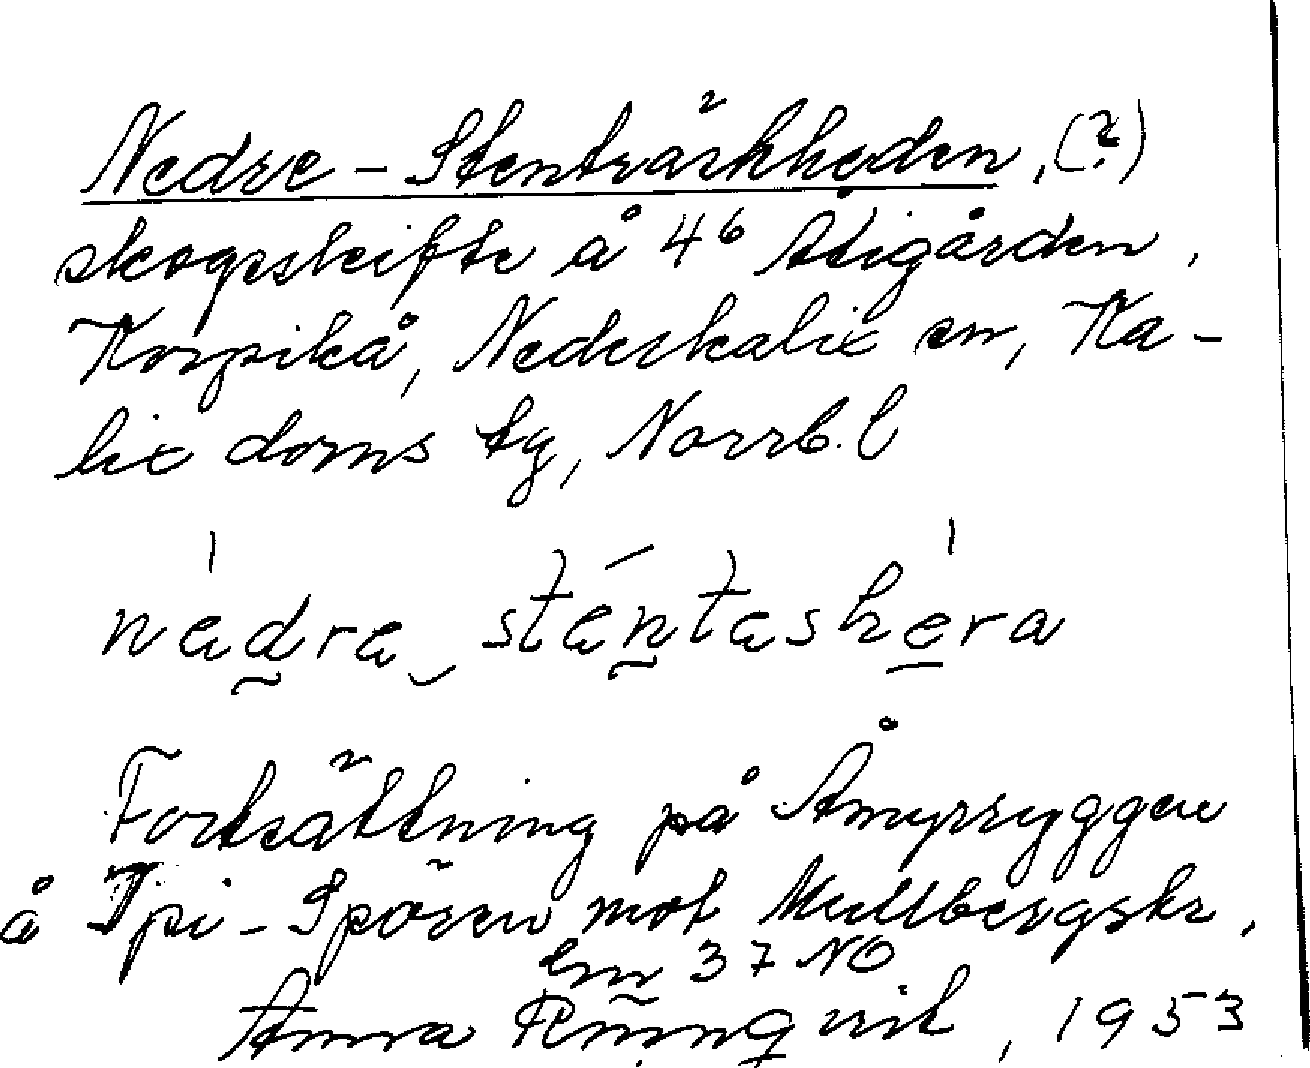 Nedre-Stenträskheden, (?)
skogsskifte å 4⁶ Åtigården,
Korpikå, Nederkalix sn, Ka-
lix doms tg, Norrb. l
nedra stentashera
Fortsättning på Åmyrryggen
å Ipi-Spören mot Mullbergskr,
Em 37 NO
Anna Rönnqvist, 1953